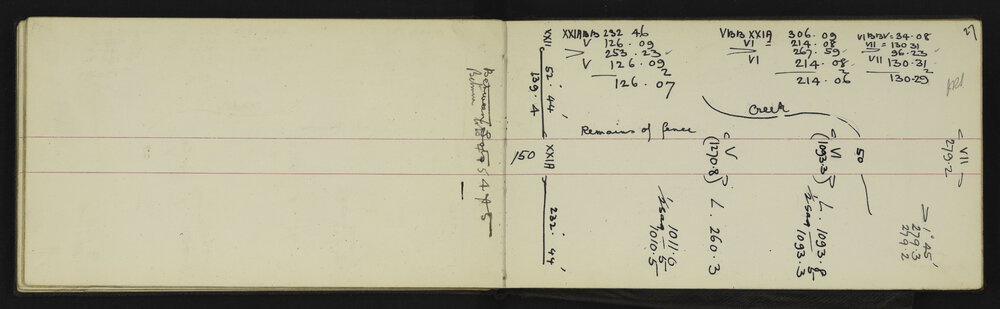 27
XXIIBB 232 46
V 126.09
> 253.23
V 126.09
2
126.07
VBB XXIA 306.09
VI 214.08
> 267.59
VI 214.08
2
214.06
VIBBV = 34.08
VII = 130 31
> 96.23
VII 130.31
2
130.29
Creek
Remains of fence
XXII 52° 44'
139.4
150 XXIA 232° 44'
V
(1270.8) L. 260.3
½sag 1011.0
.5
1010.5
VI
(1093.3) L. 1093.8
½sag .5
1093.3
50
VII
279.2
> 1° 45'
279.3
279.2
Between